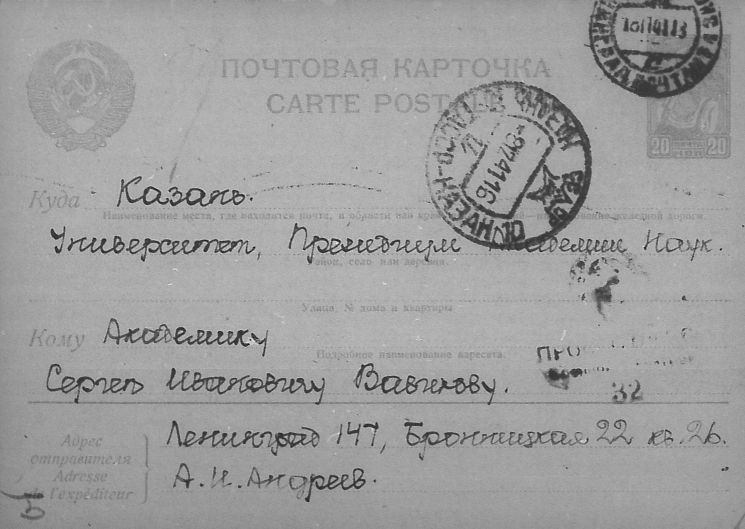 ПОЧТОВАЯ КАРТОЧКА
CARTE POSTALE
20 20
Куда Казань.
Наименование места, где находится почта, и области или края железной дороги.
Университет, Президиум Академии Наук.
Район, село или деревня.
Улица, № дома и квартиры
Кому Академику
Подробное наименование адресата.
Сергею Ивановичу Вавилову.
32
Адрес отправителя
Adresse de l'expéditeur
Ленинград 147, Бронницкая 22 кв. 26.
А.И. Андреев.